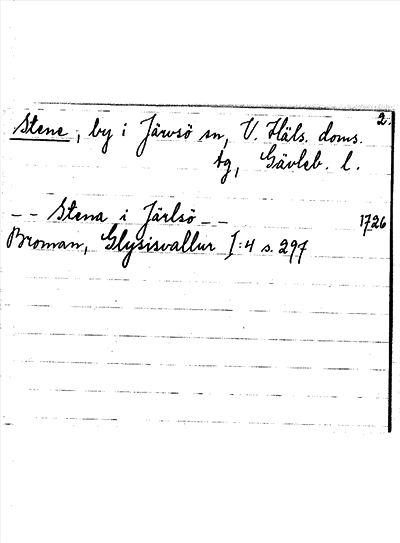 2.
Stene, by i Järvsö sn, V. Häls. doms.
tg, Gävleb. l.
-- Stena i Järlsö -- 1726
Broman, Glysisvallur I:4 s. 297